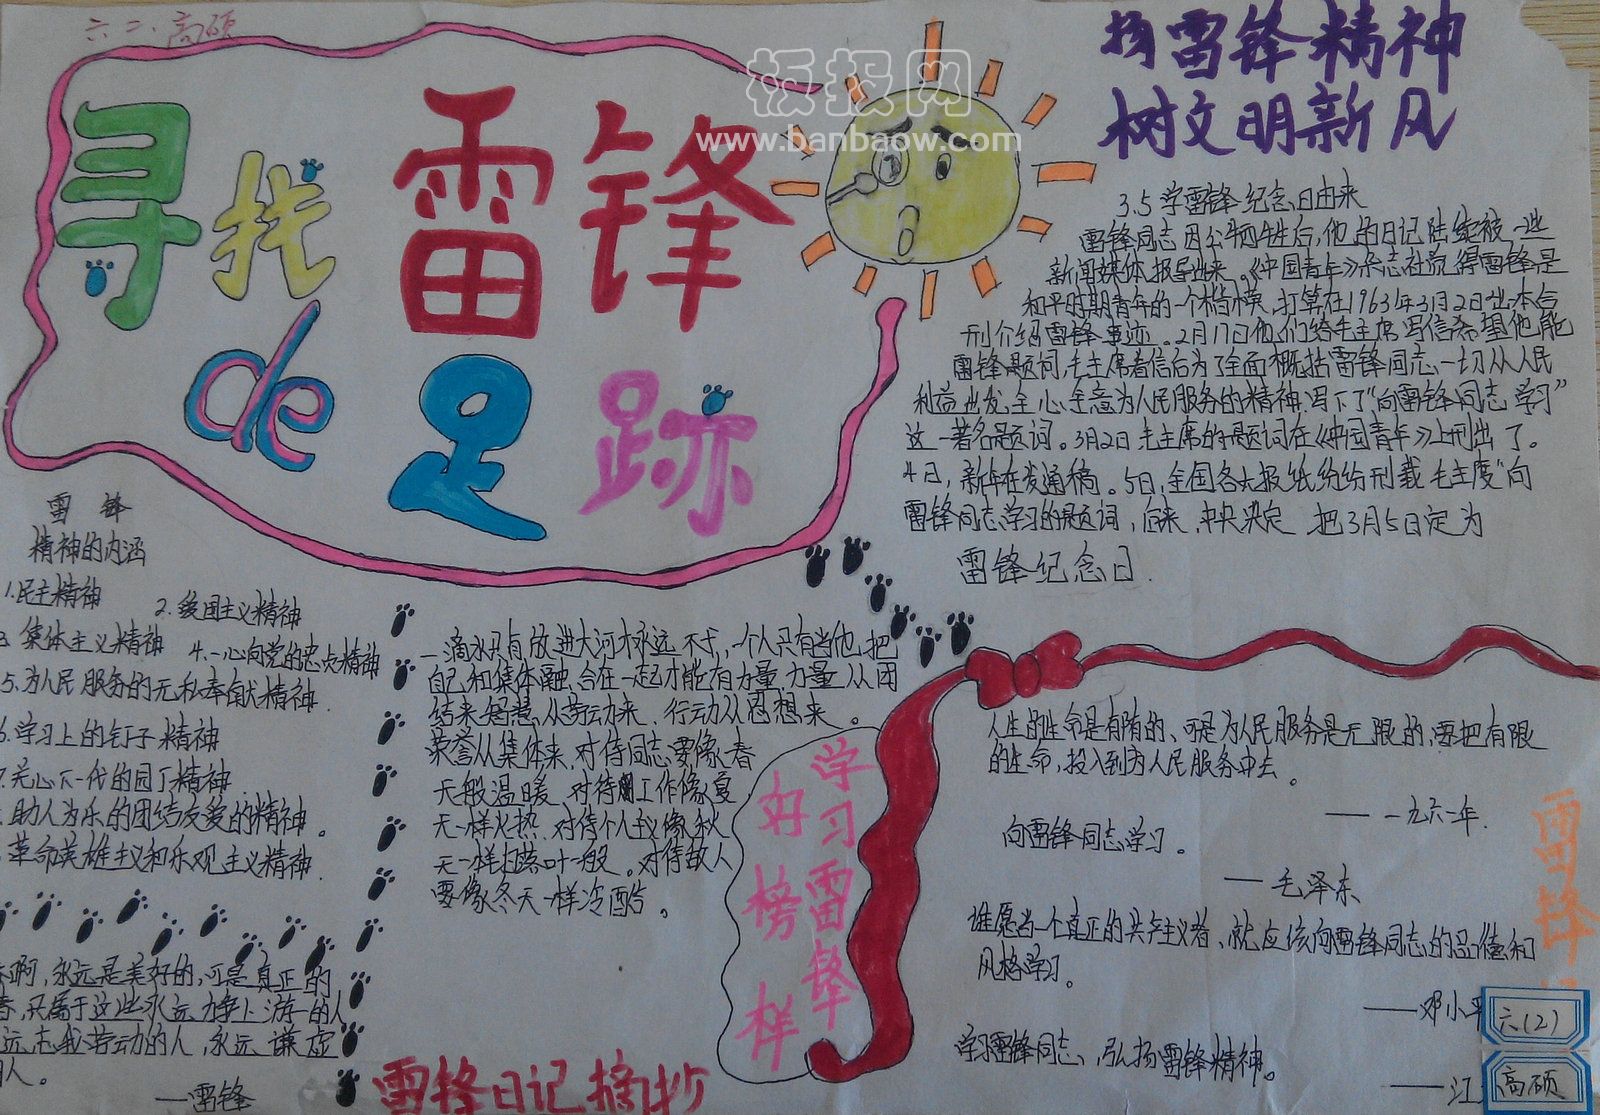 六二、高硕
板报网
www.banbaow.com
寻找
雷锋
de
足
跡
扬雷锋精神
树文明新风
3.5学雷锋纪念日由来
雷锋同志因公牺牲后,他的日记陆续被一些
新闻媒体报导出来。《中国青年》杂志社觉得雷锋是
和平时期青年的一个楷模,打算在1963年3月2日出本合
刊介绍雷锋事迹。2月17日他们给毛主席写信希望他能
雷锋题词,毛主席看信后为了全面概括雷锋同志一切从人民
利益出发,全心全意为人民服务的精神,写下了“向雷锋同志学习”
这一著名题词。3月2日毛主席的题词在《中国青年》上刊出了。
4日,新华社发通稿。5日,全国各大报纸纷纷刊载毛主席“向
雷锋同志学习的题词,后来,中央决定把3月5日定为
雷锋纪念日.
雷锋
精神的内涵
1.民主精神
2.爱国主义精神
3.集体主义精神
4.一心向党的忠贞精神
5.为人民服务的无私奉献精神.
6.学习上的钉子精神
7.关心下一代的园丁精神.
助人为乐的团结友爱的精神。
革命英雄主义和乐观主义精神.
啊,永远是美好的,可是真正的
春,只属于这些永远力争上游的人
远忘我劳动的人,永远谦虚
人。
—雷锋
一滴水只有放进大河才永远不干,一个人只有当他把
自己和集体融合在一起才能有力量,力量从团
结来,智慧从劳动来、行动从思想来。
荣誉从集体来,对待同志要像春
天般温暖.对待工作像夏
天一样火热.对待个人主义像秋
天一样扫落叶一般。对待敌人
要像冬天一样冷酷。
雷锋日记摘抄
学习雷锋
好榜样
人生的生命是有限的、可是为人民服务是无限的,要把有限
的生命,投入到为人民服务中去。
——一九六一年.
向雷锋同志学习。
——毛泽东
谁愿当一个真正的共产主义者、就应该向雷锋同志的品德和
风格学习。
——邓小平
学习雷锋同志,弘扬雷锋精神。
——江
雷锋
六(2)
高硕